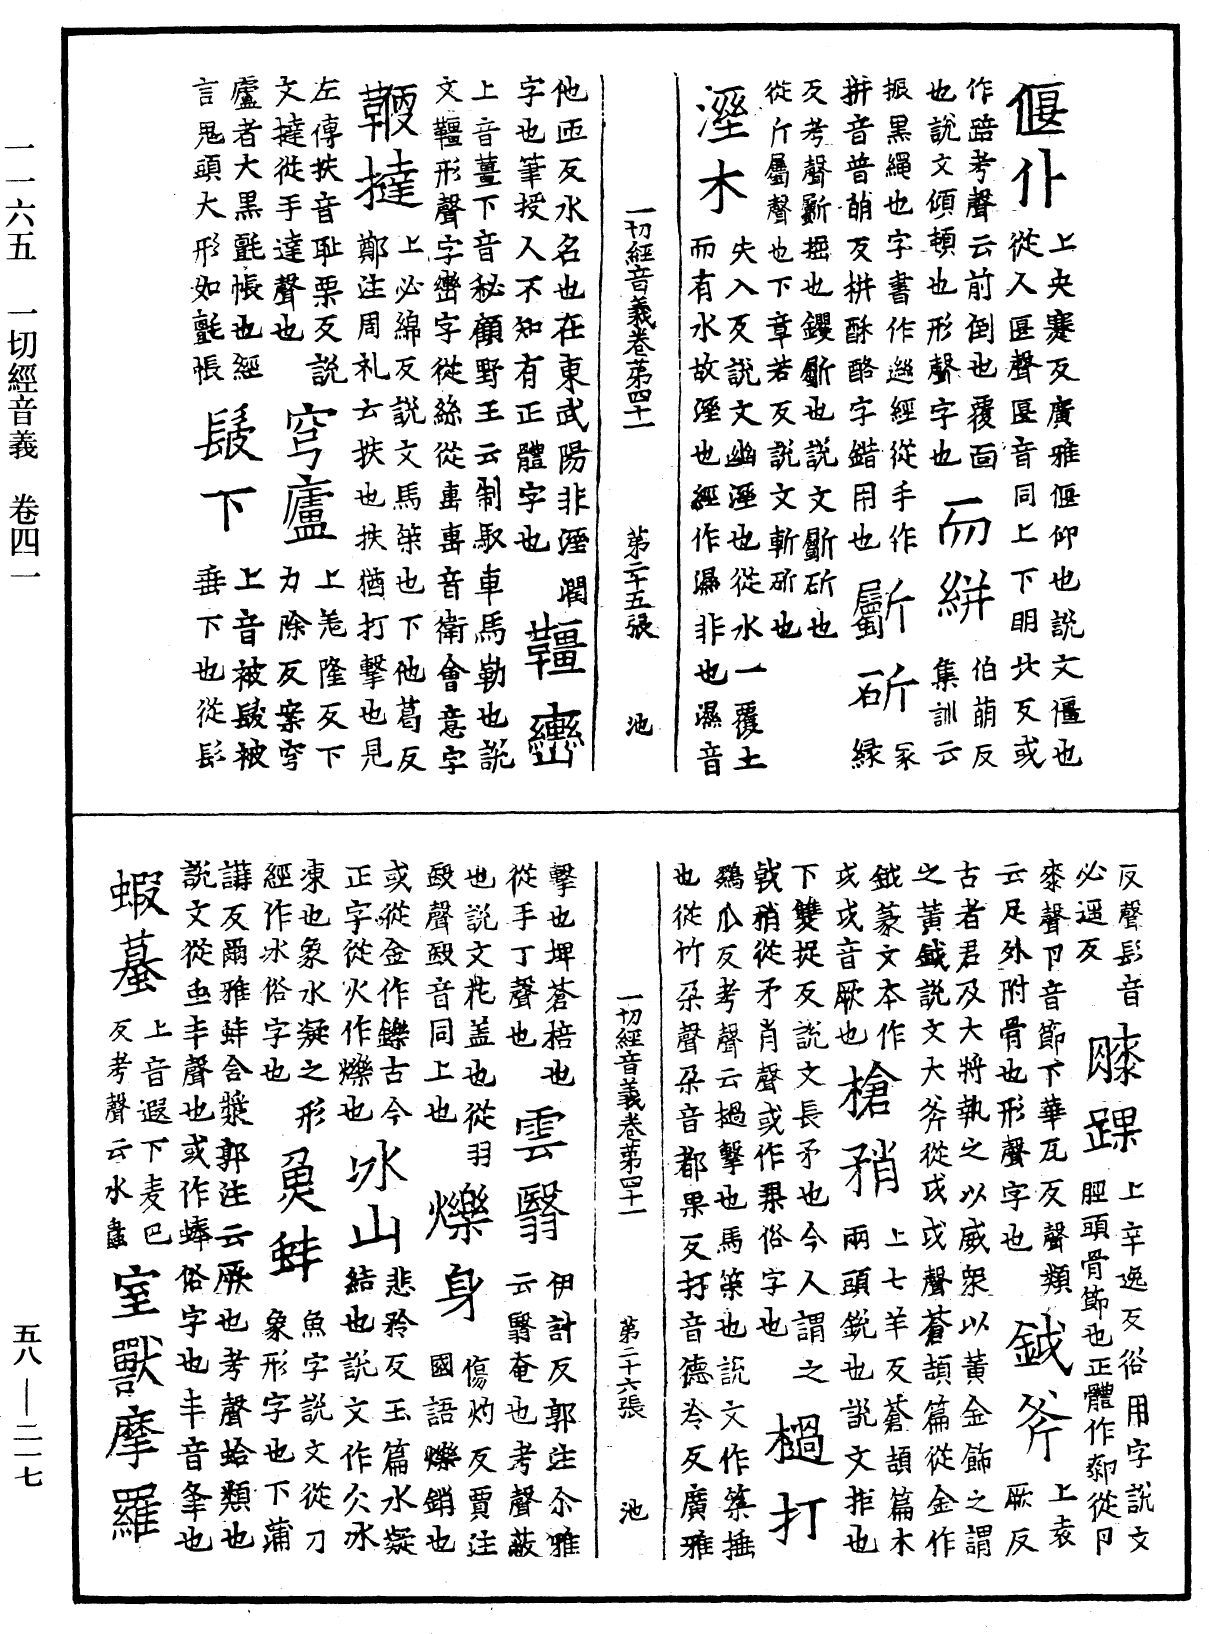 一一六五　一切經音義　卷四一
偃仆
上央蹇反廣雅偃仰也說文僵也
從人匽聲匽音同上下朙北反或
作踣考聲云前倒也覆面
也說文傾頓也形聲字也
而絣
伯萌反
集訓云
振黑繩也字書作迸經從手作
拼音普萌反拼酥酪字錯用也
斸斫
冢
綠
反考聲斸掘也钁斸也說文斸斫也
從斤屬聲也下章若反說文斬斫也
溼木
失入反說文幽溼也從水一覆土
而有水故溼也經作濕非也濕音
一切經音義卷第四十一　第二十五張　池
他匝反水名也在東武陽非溼潤
字也筆授人不知有正體字也
韁轡
上音薑下音秘顧野王云制馭車馬勒也說
文韁形聲字轡字從絲從軎軎音衛會意字
鞭撻
上必綿反說文馬䇿也下他葛反
鄭注周礼云扶也扶猶打擊也見
左傳扶音恥栗反說
文撻從手達聲也
穹廬
上羗隆反下
力除反案穹
廬者大黑氈帳也經
言鬼頭大形如氈帳
髲下
上音被髲被
垂下也從髟
反聲髟音
必遥反
膝踝
上辛逸反俗用字說文
脛頭骨節也正體作厀從卪
桼聲卪音節下華瓦反聲類
云足外附骨也形聲字也
鉞斧
上袁
厥反
古者君及大將執之以威衆以黃金飾之謂
之黃鉞說文大斧從戉戉聲蒼頡篇從金作
鉞篆文本作
戉戉音厥也
槍矟
上七羊反蒼頡篇木
兩頭銳也說文拒也
下雙捉反說文長矛也今人謂之
戟矟從矛肖聲或作槊俗字也
檛打
鵽瓜反考聲云檛擊也馬䇿也說文作䇿捶
也從竹朵聲朵音都果反打音德冷反廣雅
一切經音義卷第四十一　第二十六張　池
擊也埤蒼棓也
從手丁聲也
雲翳
伊計反郭注尒雅
云翳奄也考聲蔽
也說文花盖也從羽
殹聲殹音同上也
爍身
傷灼反賈注
國語爍銷也
或從金作鑠古今
正字從火作爍也
冰山
悲矜反玉篇水凝
結也說文作仌冰
凍也象水凝之形
經作氷俗字也
魚蚌
魚字說文從刀
象形字也下蒲
講反爾雅蚌含漿郭注云蜃也考聲蛤類也
說文從虫丰聲也或作蜯俗字也丰音峯也
蝦蟇
上音遐下麦巴
反考聲云水蟲
室獸摩羅
五八—二一七